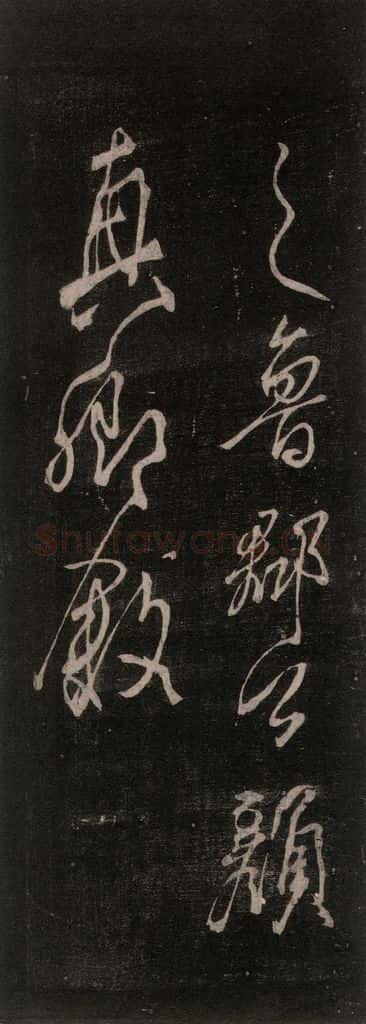 之魯郡公顏
真卿敘
Shufawang.cn